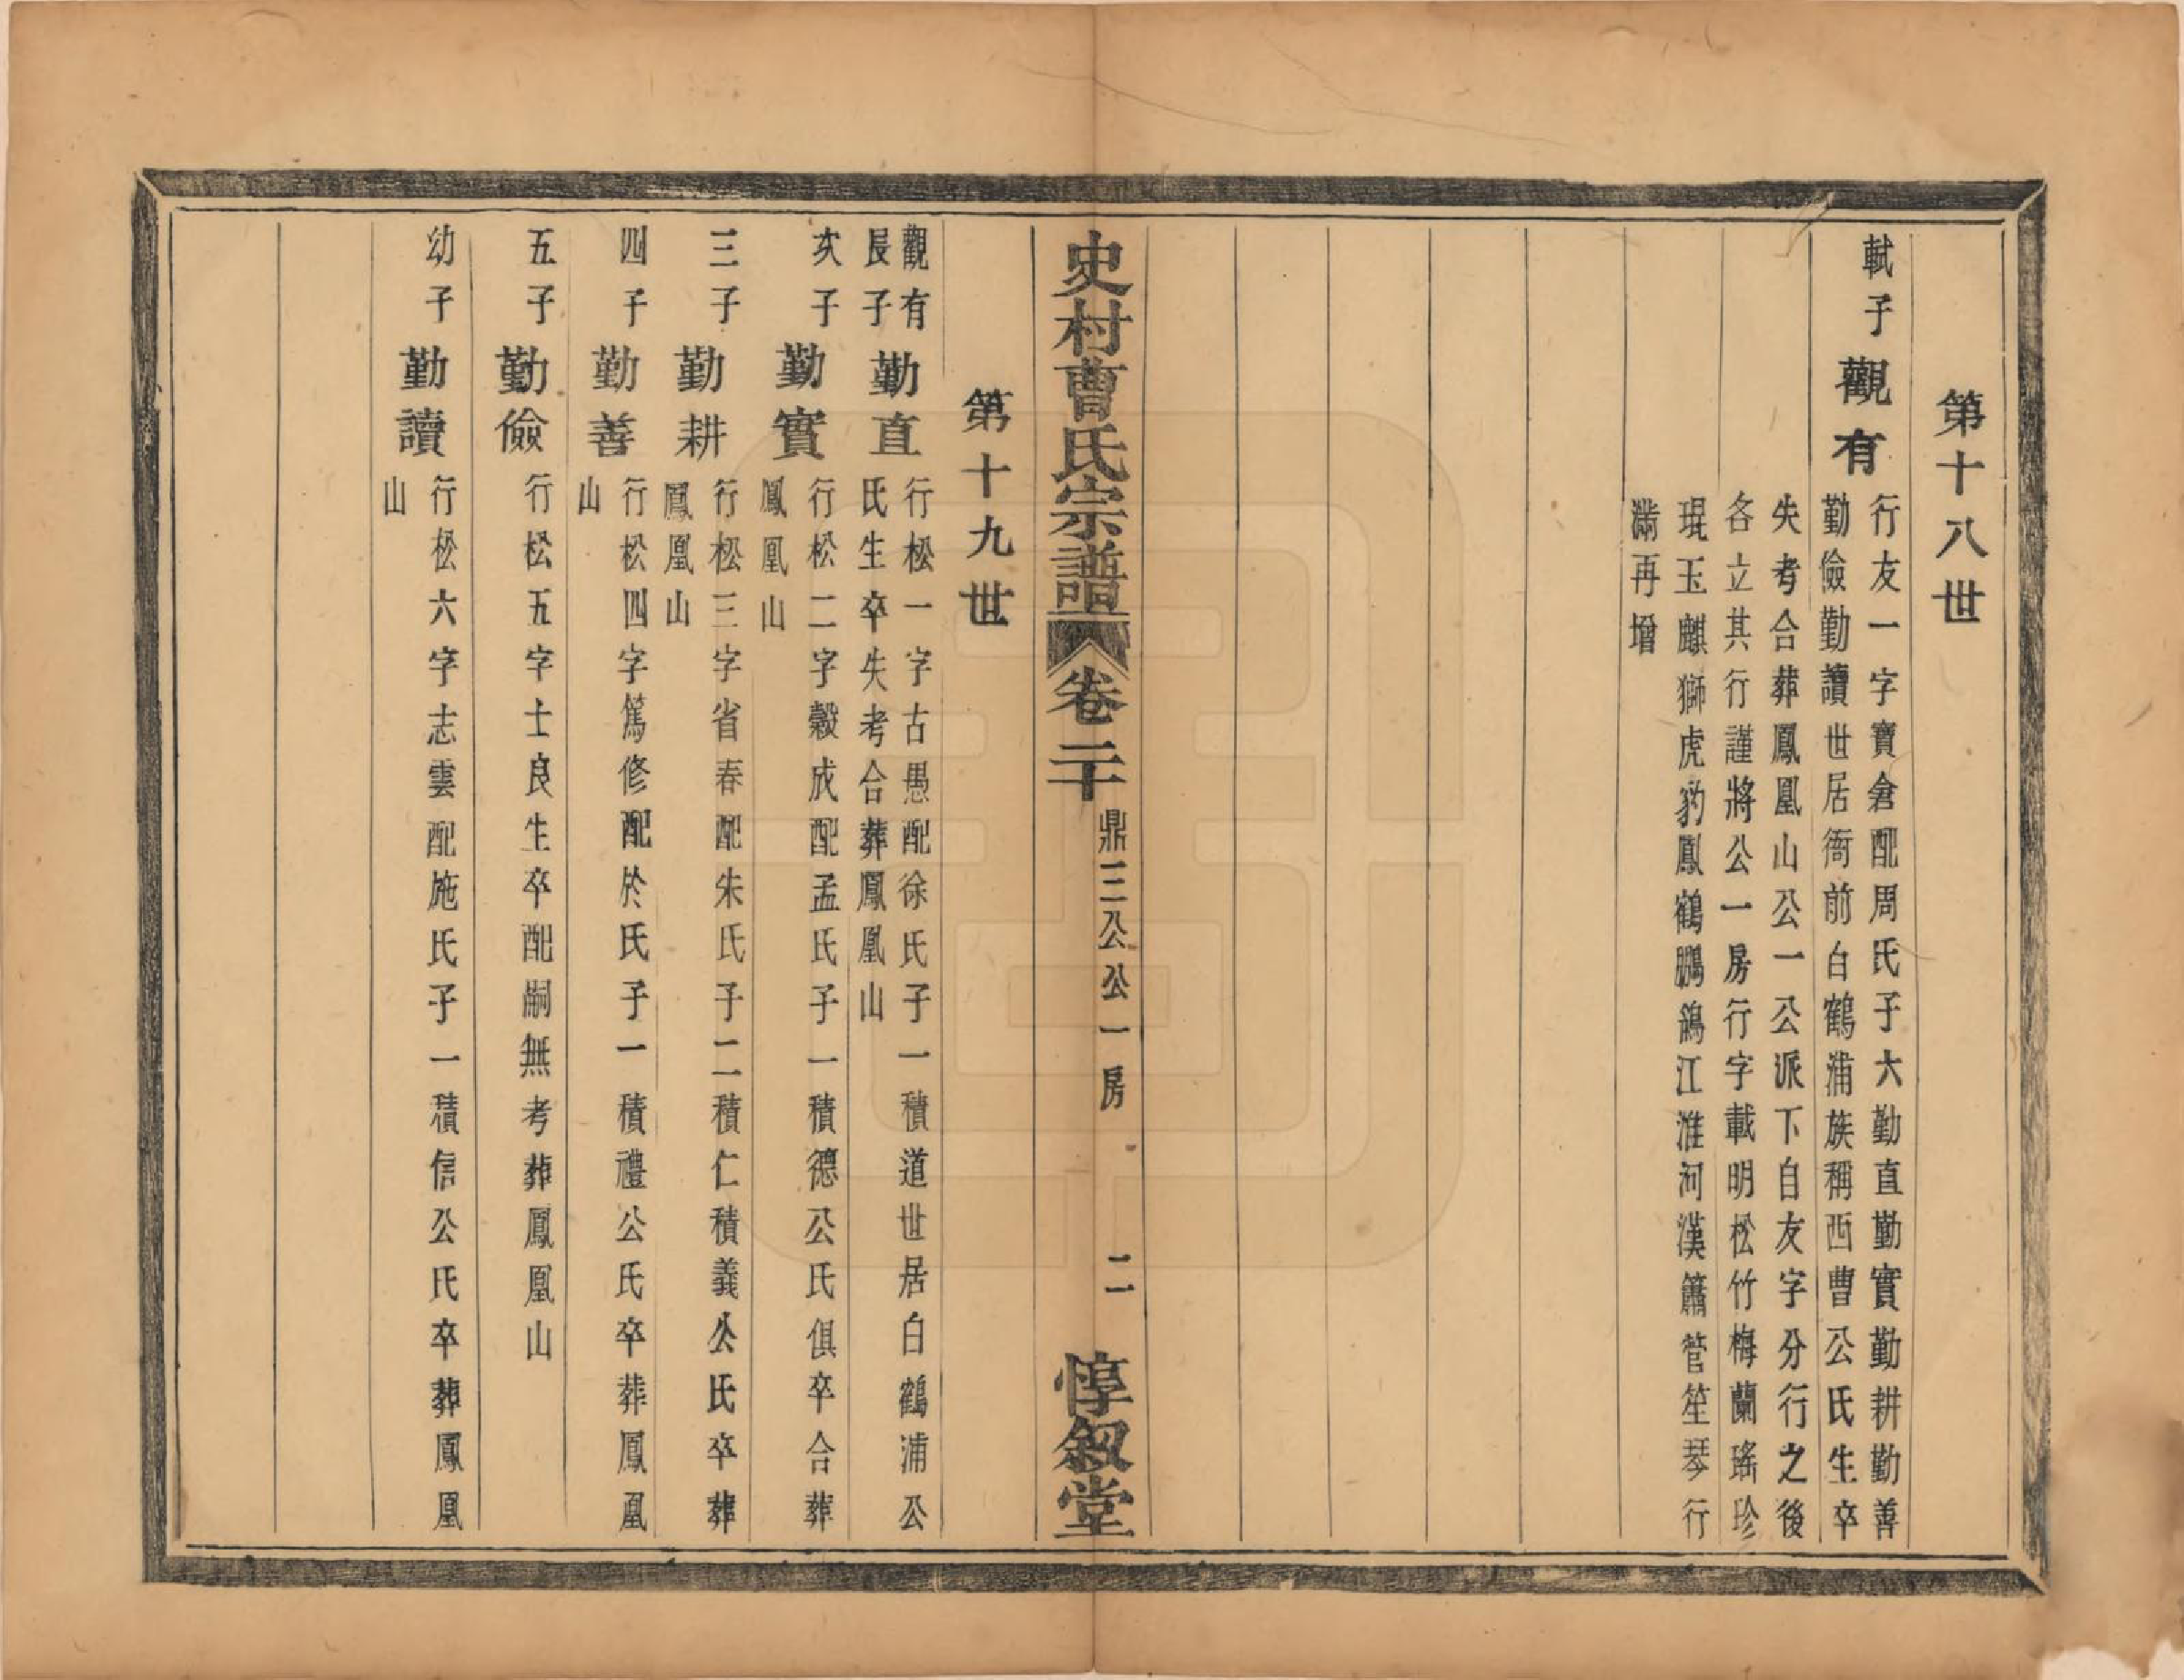 第十八世
軾子
觀有
行友一字寶倉配周氏子六勤直勤實勤耕勤善
勤儉勤讀世居衙前白鶴浦族稱西曹公氏生卒
失考合葬鳳凰山公一公派下自友字分行之後
各立其行謹將公一房行字載明松竹梅蘭瑤珍
琨玉麒獅虎豹鳳鶴鵬鴿江淮河漢簫管笙琴行
滿再增
史村曹氏宗譜
卷二十
鼎三公公一房
二
惇敘堂
第十九世
觀有
長子
勤直
行松一字古愚配徐氏子一積道世居白鶴浦公
氏生卒失考合葬鳳凰山
次子
勤實
行松二字穀成配孟氏子一積德公氏俱卒合葬
鳳凰山
三子
勤耕
行松三字省春配朱氏子二積仁積義公氏卒葬
鳳凰山
四子
勤善
行松四字篤修配於氏子一積禮公氏卒葬鳳凰
山
五子
勤儉
行松五字士良生卒配嗣無考葬鳳凰山
幼子
勤讀
行松六字志雲配施氏子一積信公氏卒葬鳳凰
山